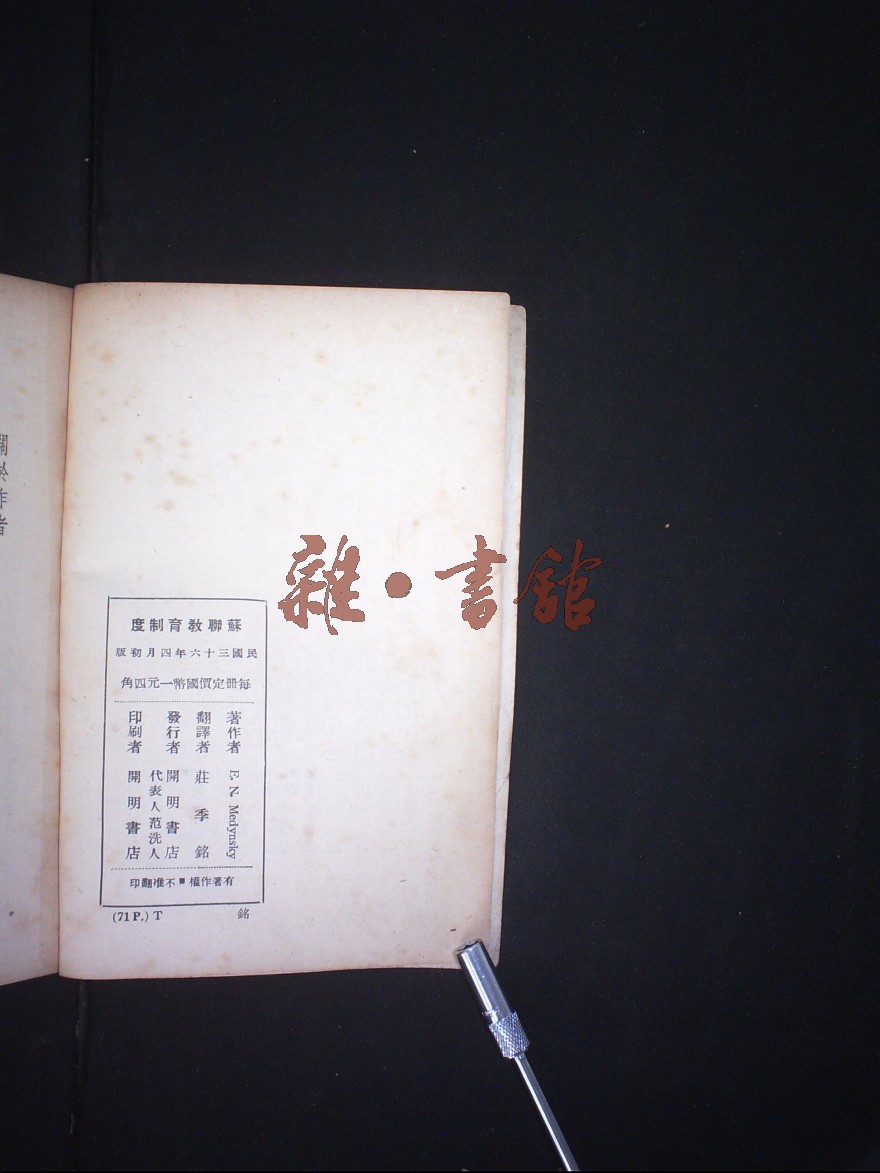 蘇聯教育制度
民國三十六年四月初版
每冊定價國幣一元四角
著作者 E. N. Medynsky
翻譯者 莊季銘
發行者 開明書店
代表人范洗人
印刷者 開明書店
有著作權■不准翻印
(71 P.) T 銘
關於作者
雜·書館